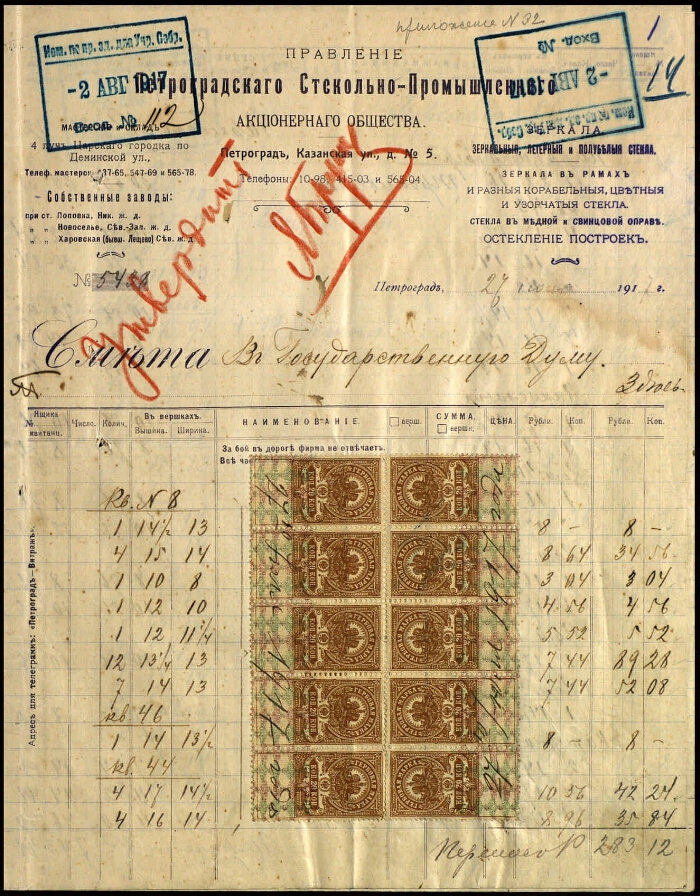 приложение N 32
1
14
Ком. по пр. зд. для Учр. Собр.
-2 АВГ 1917
№ 112
-2 АВГ 1917
Вход. №
ПРАВЛЕНІЕ
Петроградскаго Стекольно-Промышленнаго
АКЦІОНЕРНАГО ОБЩЕСТВА.
Петроградъ, Казанская ул., д. № 5.
Телефоны: 10-98, 415-03 и 565-04.
4 луч. Царскаго городка по
Деминской ул.,
Телеф. мастерск. 37-65, 547-69 и 565-78.
Собственные заводы:
при ст. Поповка, Ник. ж. д.
„ „ Новоселье, Сѣв.-Зап. ж. д.
„ „ Харовская (бывш. Лещево) Сѣв. ж. д.
№ 5438
ЗЕРКАЛА
ЗЕРКАЛЬНЫЯ, ЛЕГЕРНЫЯ и ПОЛУБѢЛЫЯ СТЕКЛА.
ЗЕРКАЛА ВЪ РАМАХЪ
И РАЗНЫЯ КОРАБЕЛЬНЫЯ, ЦВѢТНЫЯ
И УЗОРЧАТЫЯ СТЕКЛА.
СТЕКЛА ВЪ МѢДНОЙ и СВИНЦОВОЙ ОПРАВѢ.
ОСТЕКЛЕНІЕ ПОСТРОЕКЪ.
утвердить
Петроградъ, 27 191 г.
Смѣта Въ Государственную Думу.
Здѣсь
Ящика № квитанц. Число. Колич. Въ вершкахъ. Вышина. Ширина. НАИМЕНОВАНІЕ. верш. СУММА. вершк. ЦѢНА. Рубли. Коп. Рубли. Коп.
За бой въ дорогѣ фирма не отвѣчаетъ.
Все
Адресъ для телеграммъ: «Петроградъ—Витражъ».
кв. N 8
1 14½ 13 8 – 8 –
4 15 14 8 64 34 56
1 10 8 3 04 3 04
1 12 10 4 56 4 56
1 12 11¼ 5 52 5 52
12 13¼ 13 7 44 89 28
7 14 13 7 44 52 08
кв. 46
1 14 13½ 8 – 8 –
кв. 44
4 17 14½ 10 56 42 24
4 16 14 8 96 35 84
Переносъ Р 283 12